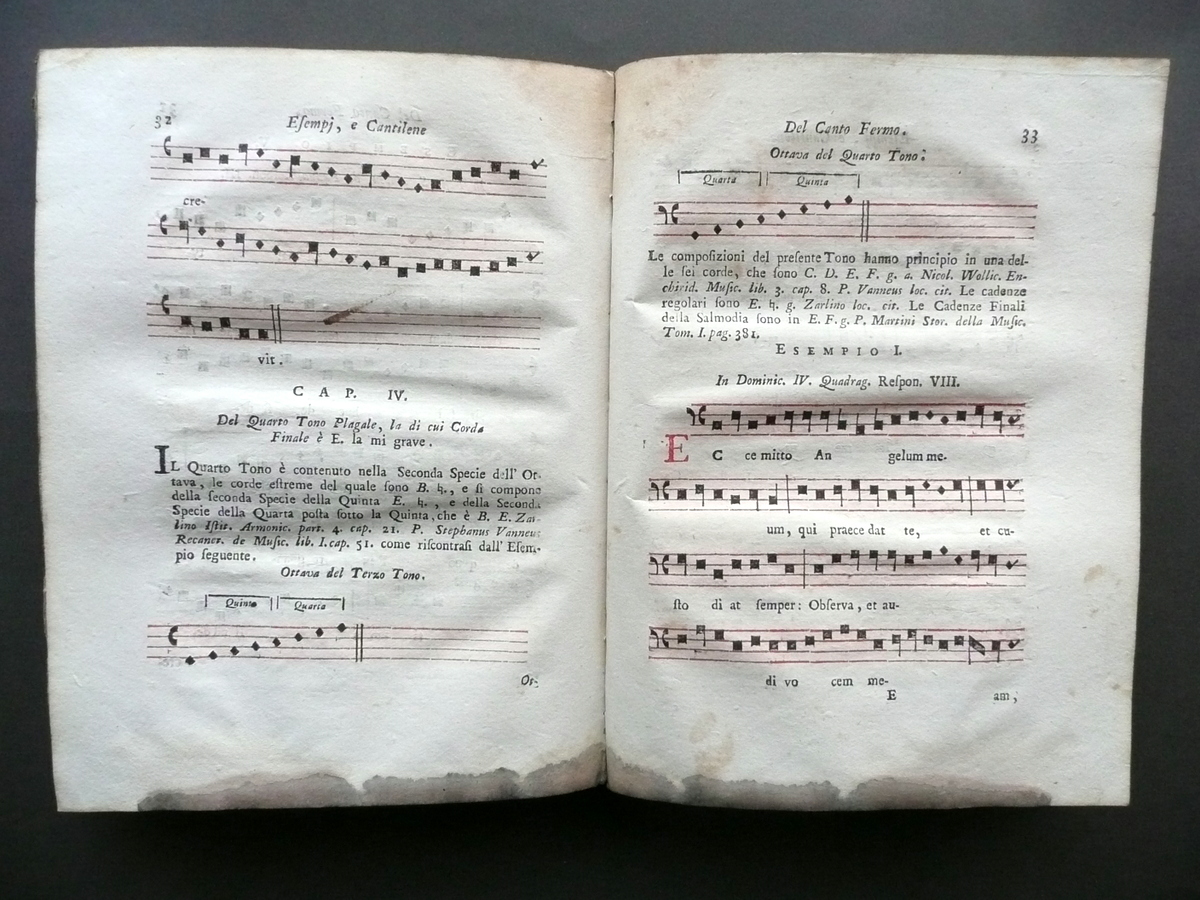 32
Eſempj, e Cantilene
cre-
vit.
CAP. IV.
Del Quarto Tono Plagale, la di cui Corda
Finale è E. la mi grave.
IL Quarto Tono è contenuto nella Seconda Specie dell' Ot-
tava, le corde eſtreme del quale ſono B. ♮., e ſi compone
della ſeconda Specie della Quinta E. ♮., e della Seconda
Specie della Quarta poſta ſotto la Quinta, che è B. E. Zar-
lino Iſtit. Armonic. part. 4. cap. 21. P. Stephanus Vanneus
Recanet. de Muſic. lib. I. cap. 51. come riſcontraſi dall' Eſem-
pio ſeguente.
Ottava del Terzo Tono.
Quinta Quarta
Ot-
Del Canto Fermo.
33
Ottava del Quarto Tono.
Quarta Quinta
Le compoſizioni del preſente Tono hanno principio in una del-
le ſei corde, che ſono C. D. E. F. g. a. Nicol. Wollic. En-
chirid. Muſic. lib. 3. cap. 8. P. Vanneus loc. cit. Le cadenze
regolari ſono E. ♮. g. Zarlino loc. cit. Le Cadenze Finali
della Salmodia ſono in E. F. g. P. Martini Stor. della Muſic.
Tom. I. pag. 381.
ESEMPIO I.
In Dominic. IV. Quadrag. Reſpon. VIII.
EC ce mitto An gelum me-
um, qui praece dat te, et cu-
ſto di at ſemper: Obſerva, et au-
di vo cem me-
E am,